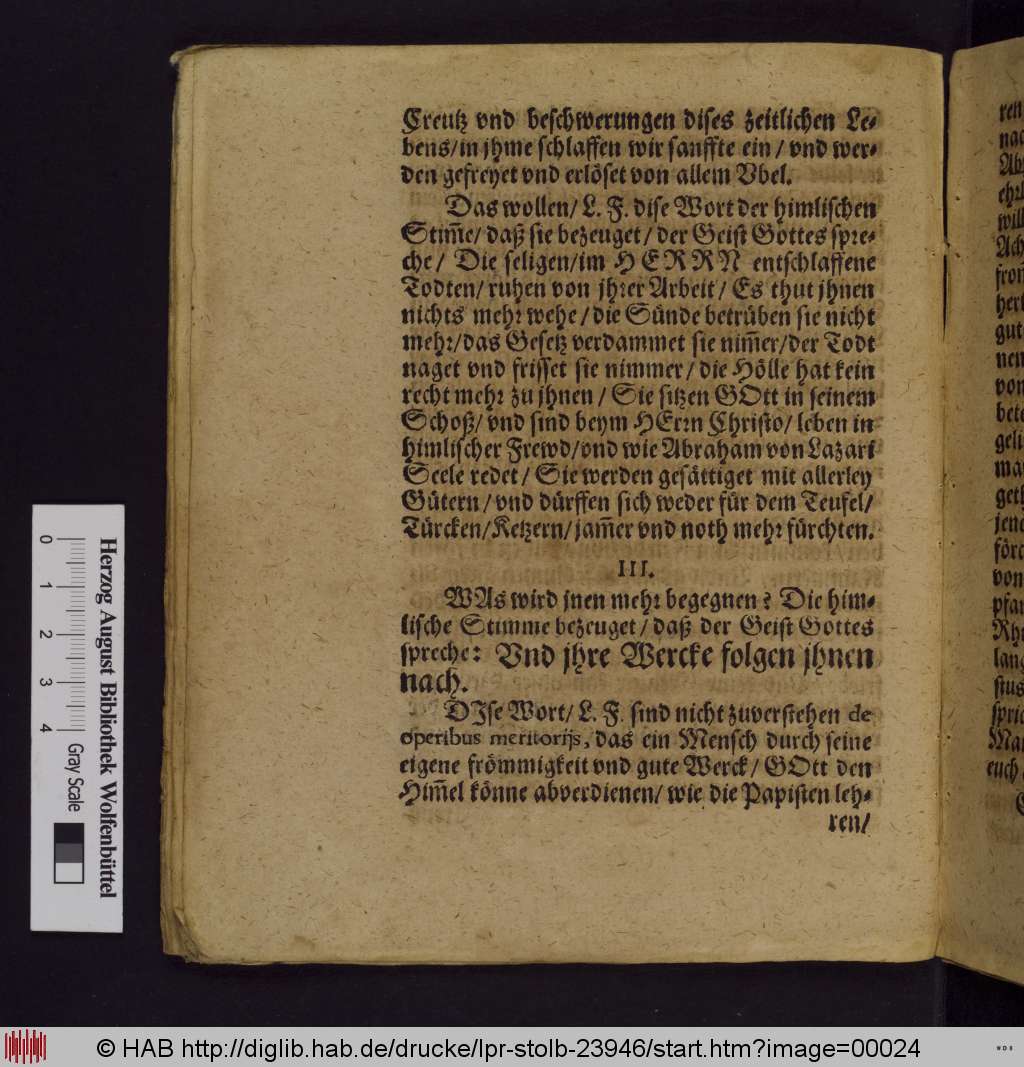 Creutz vnd beschwerungen dises zeitlichen Le-
bens/in jhme schlaffen wir sanffte ein / vnd wer-
den gefreyet vnd erlöset von allem Vbel.
Das wollen/ L. F. dise Wort der himlischen
Stim̄e/ daß sie bezeuget / der Geist Gottes spre-
che/ Die seligen/im HERRN entschlaffene
Todten/ ruhen von jhrer Arbeit/ Es thut jhnen
nichts mehr wehe / die Sünde betrüben sie nicht
mehr/das Gesetz verdammet sie nim̄er/der Todt
naget vnd frisset sie nimmer / die Hölle hat kein
recht mehr zu jhnen / Sie sitzen GOtt in seinem
Schoß/ vnd sind beym HErrn Christo/ leben in
himlischer Frewd/vnd wie Abraham von Lazari
Seele redet / Sie werden gesättiget mit allerley
Gütern / vnd dürffen sich weder für dem Teufel/
Türcken/Ketzern/ jam̄er vnd noth mehr fürchten.
III.
WAs wird jnen mehr begegnen? Die him-
lische Stimme bezeuget / daß der Geist Gottes
spreche: Vnd jhre Wercke folgen jhnen
nach.
DIse Wort/ L. F. sind nicht zuverstehen de
operibus meritorijs, das ein Mensch durch seine
eigene frömmigkeit vnd gute Werck / GOtt den
Him̄el könne abverdienen/ wie die Papisten leh-
ren/
ren
nac
Abr
ehrl
will
Ach
from
herr
gut
nen
von
bete
geli
man
geth
jene
förc
von
pfar
Rhe
lang
stus
spric
Mar
euch
Herzog August Bibliothek Wolfenbüttel
0 1 2 3 4
Gray Scale
© HAB http://diglib.hab.de/drucke/lpr-stolb-23946/start.htm?image=00024
WDB